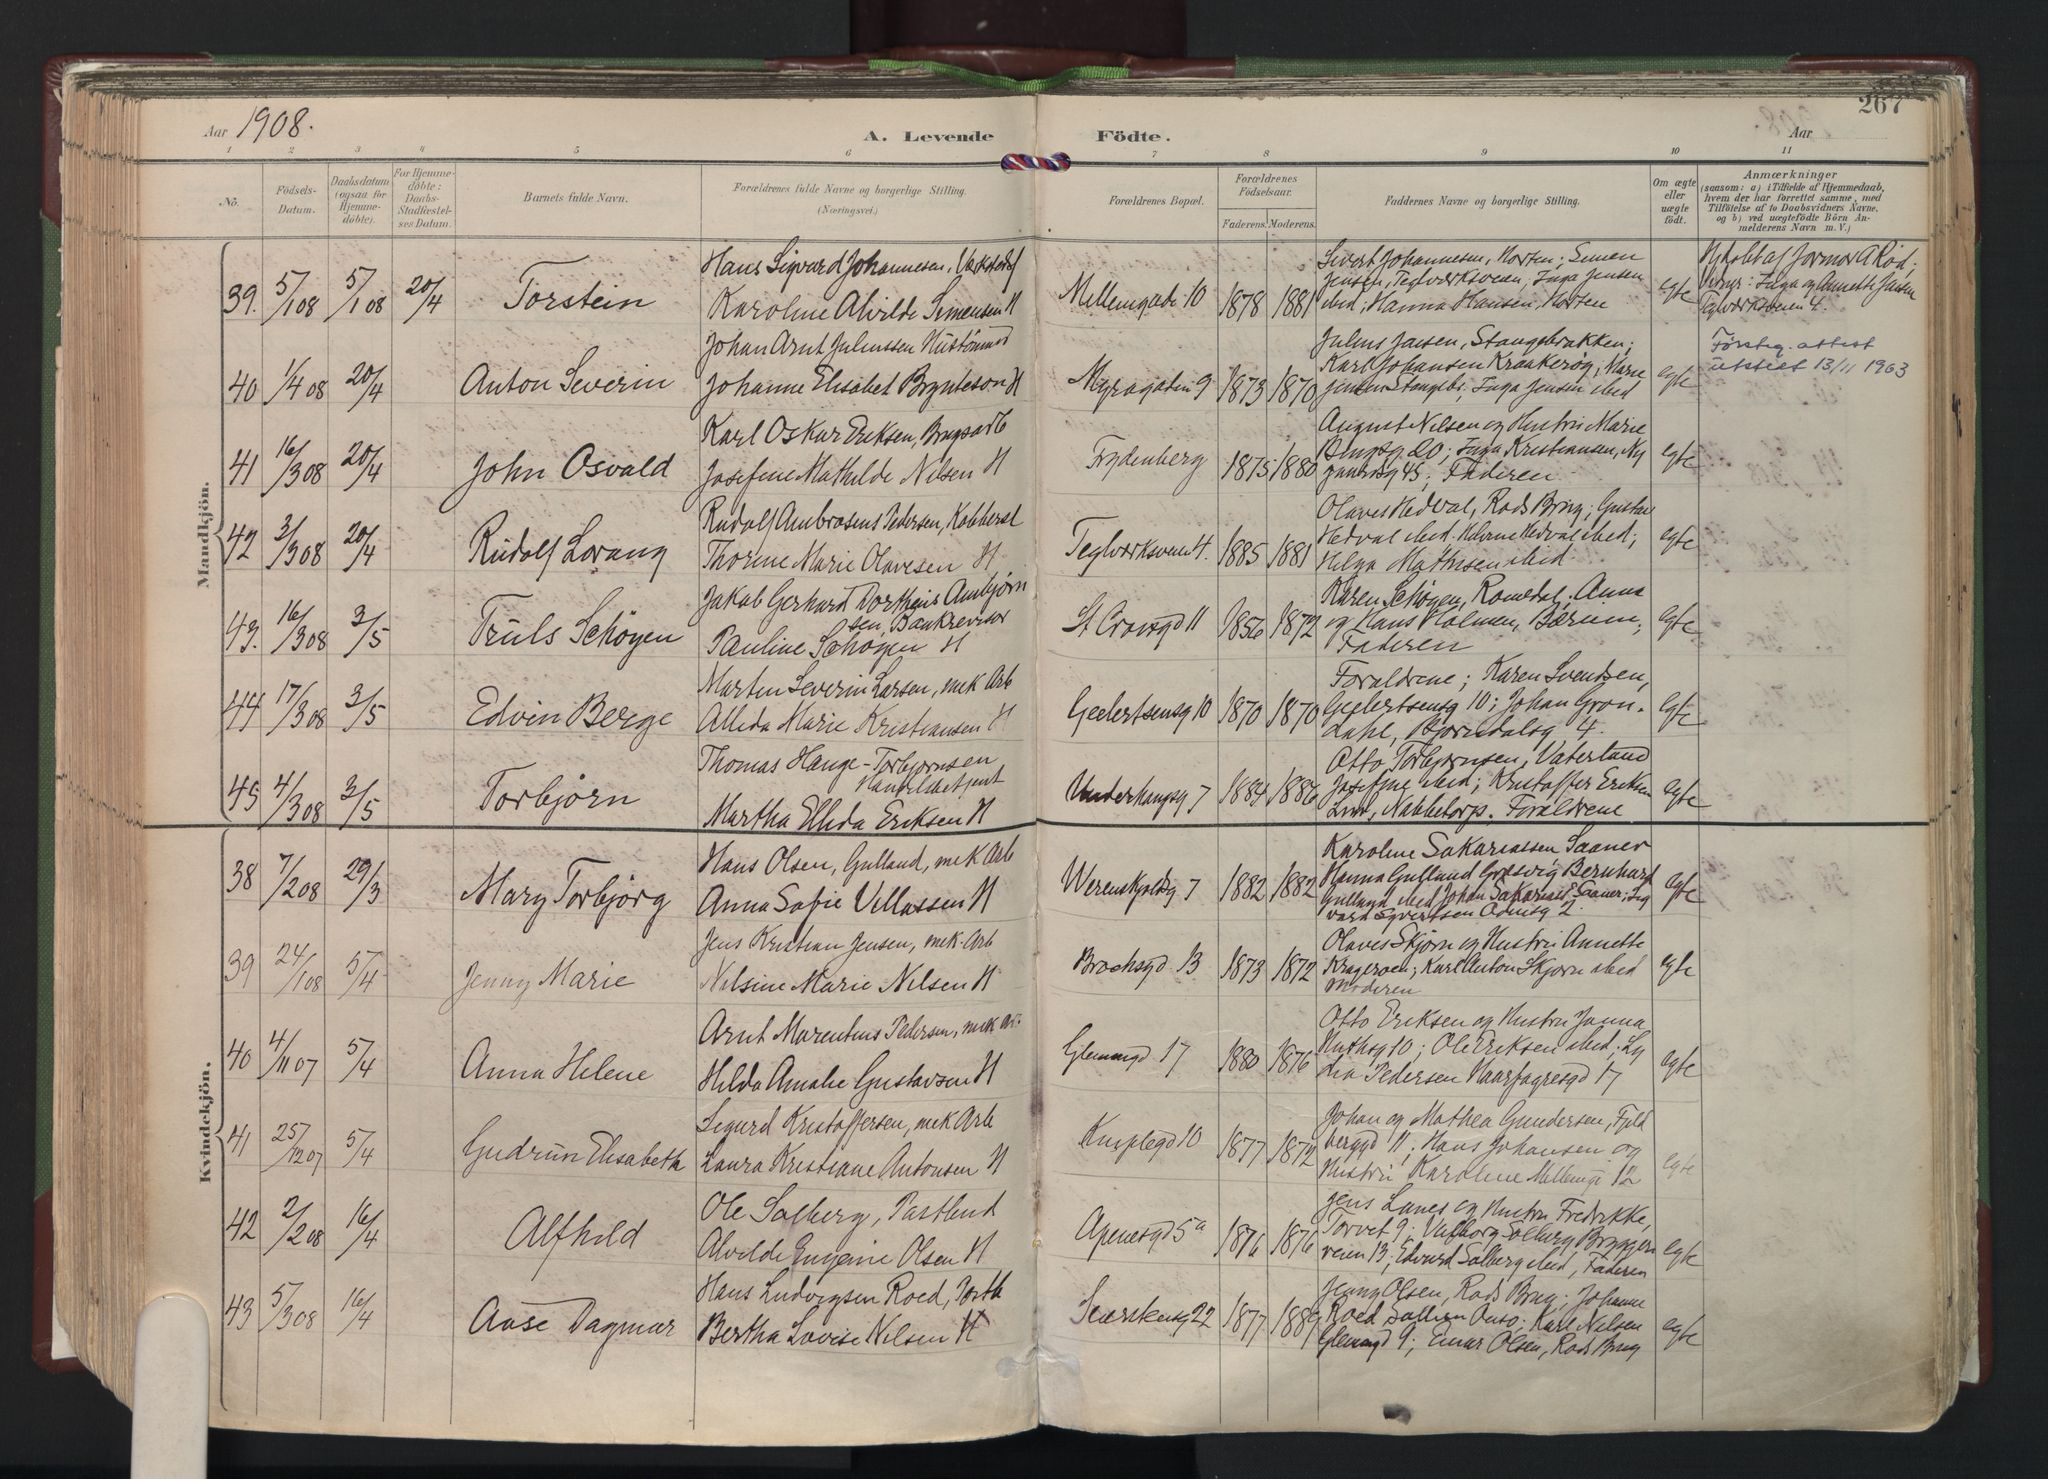 267
Aar 1908.
A. Levende Födte.
Aar
1 2 3 4 5 6 7 8 9 10 11
No.
Födsels-
Datum.
Daabsdatum
(ogsaa for
Hjemme-
döbte).
For Hjemme-
döbte:
Daabs-
Stadfæstel-
ses Datum.
Barnets fulde Navn.
Forældrenes fulde Navne og borgerlige Stilling.
(Næringsvei.)
Forældrenes Bopæl.
Forældrenes
Födselsaar.
Faderens. Moderens.
Faddernes Navne og borgerlige Stilling.
Om ægte
eller
uægte
födt.
Anmærkninger
(saasom: a) i Tilfælde af Hjemmedaab,
hvem der har forrettet samme, med
Tilföielse af to Daabsvidners Navne,
og b) ved uægtefödte Börn An-
melderens Navn m. V.)
Mandkjön.
39. 5/1 08 5/1 08 20/4 Torstein
Hans Sigvard Johannesen,
Karoline Alvilde Simensen H
Mellemgadn 10 1878 1881
Sivert Johannesen, Horten; Simen
Jensen, Teglverksveien, Inga Jensen
ibid; Hanna Hansen, Horten
egte
Teglverksveien 4.
40 1/4 08 20/4 Anton Severin
Johan Arnt Juliussen
Johanne Elisabet Brynteson H
Myragaden 9 1873 1870
Julius Jansen, Stangebrakken;
Karl Johansen Kraakerøy; Marie
Jensen Stangebr; Inga Jensen ibid
egte
Førsteg. attest
utstedt 13/11 1963
41 16/3 08 20/4 John Osvald
Karl Oskar Eriksen, Brugsarb
Josefine Mathilde Nilsen H
Frydenberg 1875 1880
August Nilsen og Hustru Marie
20; Inga Kristiansen, Ny
45; Faderen
egte
42 3/3 08 20/4 Rudolf Lorang
Rudolf Ambrosius Pedersen,
Thorine Marie Olavesen H
Teglverksveien 4. 1885 1881
Olaves Hedval, Rods Brug; Gustav
Hedval ibid. Helene Hedval ibid;
Helga Mathisen ibid.
egte
43. 16/3 08 3/5 Truls Schøyen
Jakob Gerhard Dorthius Arnbjørn
sen, Bankrevisor
Pauline Schøyen H
St Croixgd 11 1856 1872
Karen Schøyen, Romedal, Anna
og Hans Holmen, Bærum;
Faderen
egte
44 17/3 08 3/5 Edvin Berge
Martin Severin Larsen, mek Arb
Allida Marie Kristiansen H
Geelertsensg 10 1870 1870
Foraldrene; Karen Svendsen,
Geelertsensg 10; Johan Gron-
dahl, Bjornedalsg 4.
egte
45 4/3 08 3/5 Torbjørn
Thomas Hauge-Torbjørnsen
Handelsbetjent
Martha Ellida Eriksen H
Underhaugsg 7 1884 1886
Otto Torbjørnsen, Vaterland
Josefine ibid; Kristoffer Eriksen
Nabbetorp. Foraldrene
egte
Kvindekjön.
38 7/2 08 29/3 Mary Torbjørg
Hans Olsen, Gulland, mek Arb
Anna Sofie Villassen H
Werenskjoldsg 7 1882 1882
Karoline Sakariassen Saaner
Hanna Gulland Gresvig Bernhard
Gulland ibid Johan Sakariass. Saaner; Sig
vard Syvertsen 2
egte
39 24/1 08 5/4 Jenny Marie
Jens Kristian Jensen, mek. Arb
Nilsine Marie Nilsen H
Brochsgd 13 1873 1872
Olaves Skjørn og Hustru Annette
Krageroen; Karl Anton Skjørn ibid
Moderen
egte
40 4/11 07 5/4 Anna Helene
Arnt Marentius Pedersen, mek Arb
Hilda Amalie Gustavsen H
Glemmengd 17 1880 1876
Otto Eriksen og Hustru Janna,
10; Ole Eriksen ibid; Ly
dia Pedersen Haarfagresgd 17
egte
41 25/12 07 5/4 Gudrun Elisabeth
Sigurd Kristoffersen, mek Arb
Laura Kristiane Antonsen H
Kniplegd 10 1877 1872
Johan og Mathea Gundersen, Fjeld
berggd 11; Hans Johansen og
Hustru Karoline Mellemg 12
egte
42 2/2 08 16/4 Alfhild
Ole Solberg, Postbud
Alvilde Eugenie Olsen H
Apenesgd 5a 1876 1876
Jens Lunes og Hustru Fredrikke,
Torvet 9; Valborg Solberg Bryggeri
veien 13; Edvard Solberg ibid, Faderen
egte
43 5/3 08 16/4 Aase Dagmar
Hans Ludvigsen Roed,
Bertha Lovise Nilsen H
22 1877 1889
Jenny Olsen, Rods Brug; Johanne
Roed Onsø; Karl Nilsen
Glemmengd 9; Einar Olsen, Rods Brug
egte